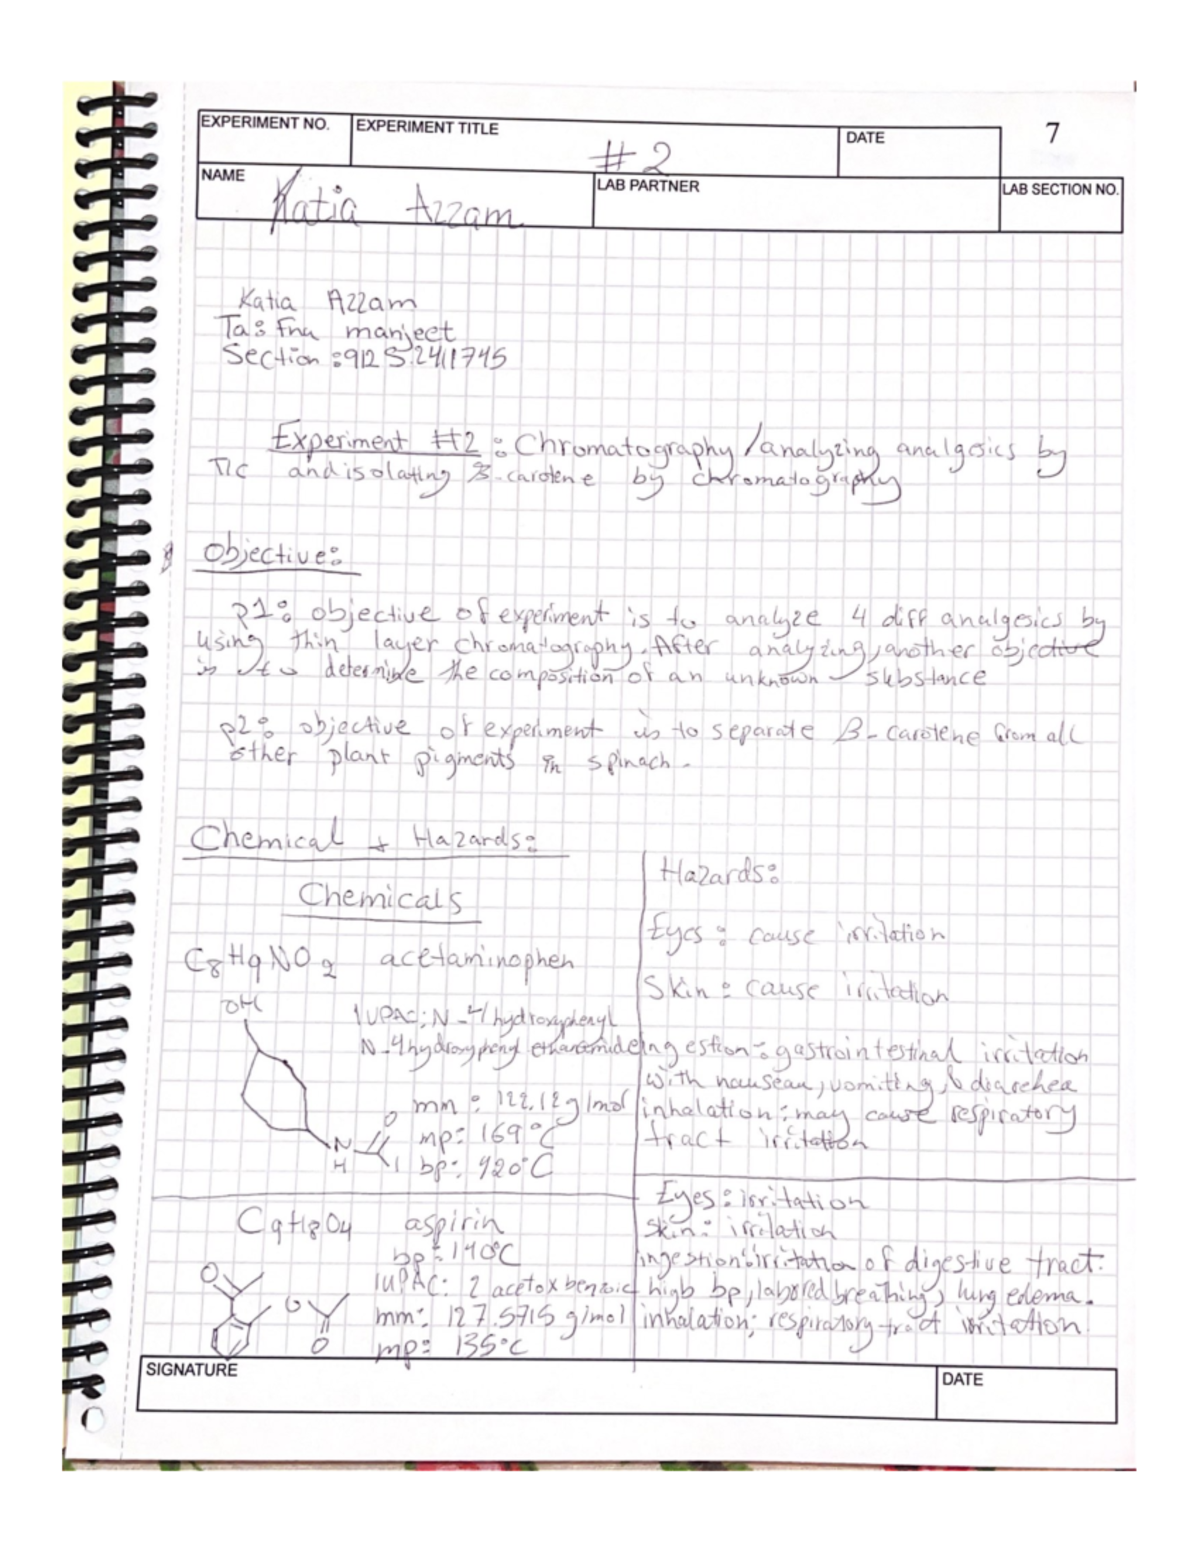 EXPERIMENT NO.
EXPERIMENT TITLE
#2
DATE
7
NAME
Katia Azzam
LAB PARTNER
LAB SECTION NO.
Katia Azzam
Ta: Fnu manjeet
Section: 912 S.2411745
Experiment #2: Chromatography/analyzing analgesics by
Tlc and isolating B-carotene by chromatography
Objective:
P1: objective of experiment is to analyze 4 diff analgesics by
using thin layer chromatography. After analyzing, another objective
is to determine the composition of an unknown substance
P2: objective of experiment is to separate B-carotene from all
other plant pigments in spinach.
Chemical + Hazards:
Chemicals
C8H9NO2 acetaminophen
OH
IUPAC: N-4/hydroxyphenyl
N-4hydroxyphenyl ethanamide
mm: 122.12g/mol
O
mp: 169°C
N
H
bp: 420°C
Hazards:
Eyes: cause irritation
Skin: cause irritation
ingestion: gastrointestinal irritation
with nausean, vomiting, & diarehea
inhalation: may cause respiratory
tract irritation
C9H8O4 aspirin
bp: 140°C
IUPAC: 2 acetoxbenzoic
mm: 127.5715 g/mol
mp: 135°C
O
O
O
Eyes: irritation
Skin: irritation
ingestion: irritation of digestive tract.
high bp, labored breathing, lung edema.
inhalation; respiratory tract irritation.
SIGNATURE
DATE